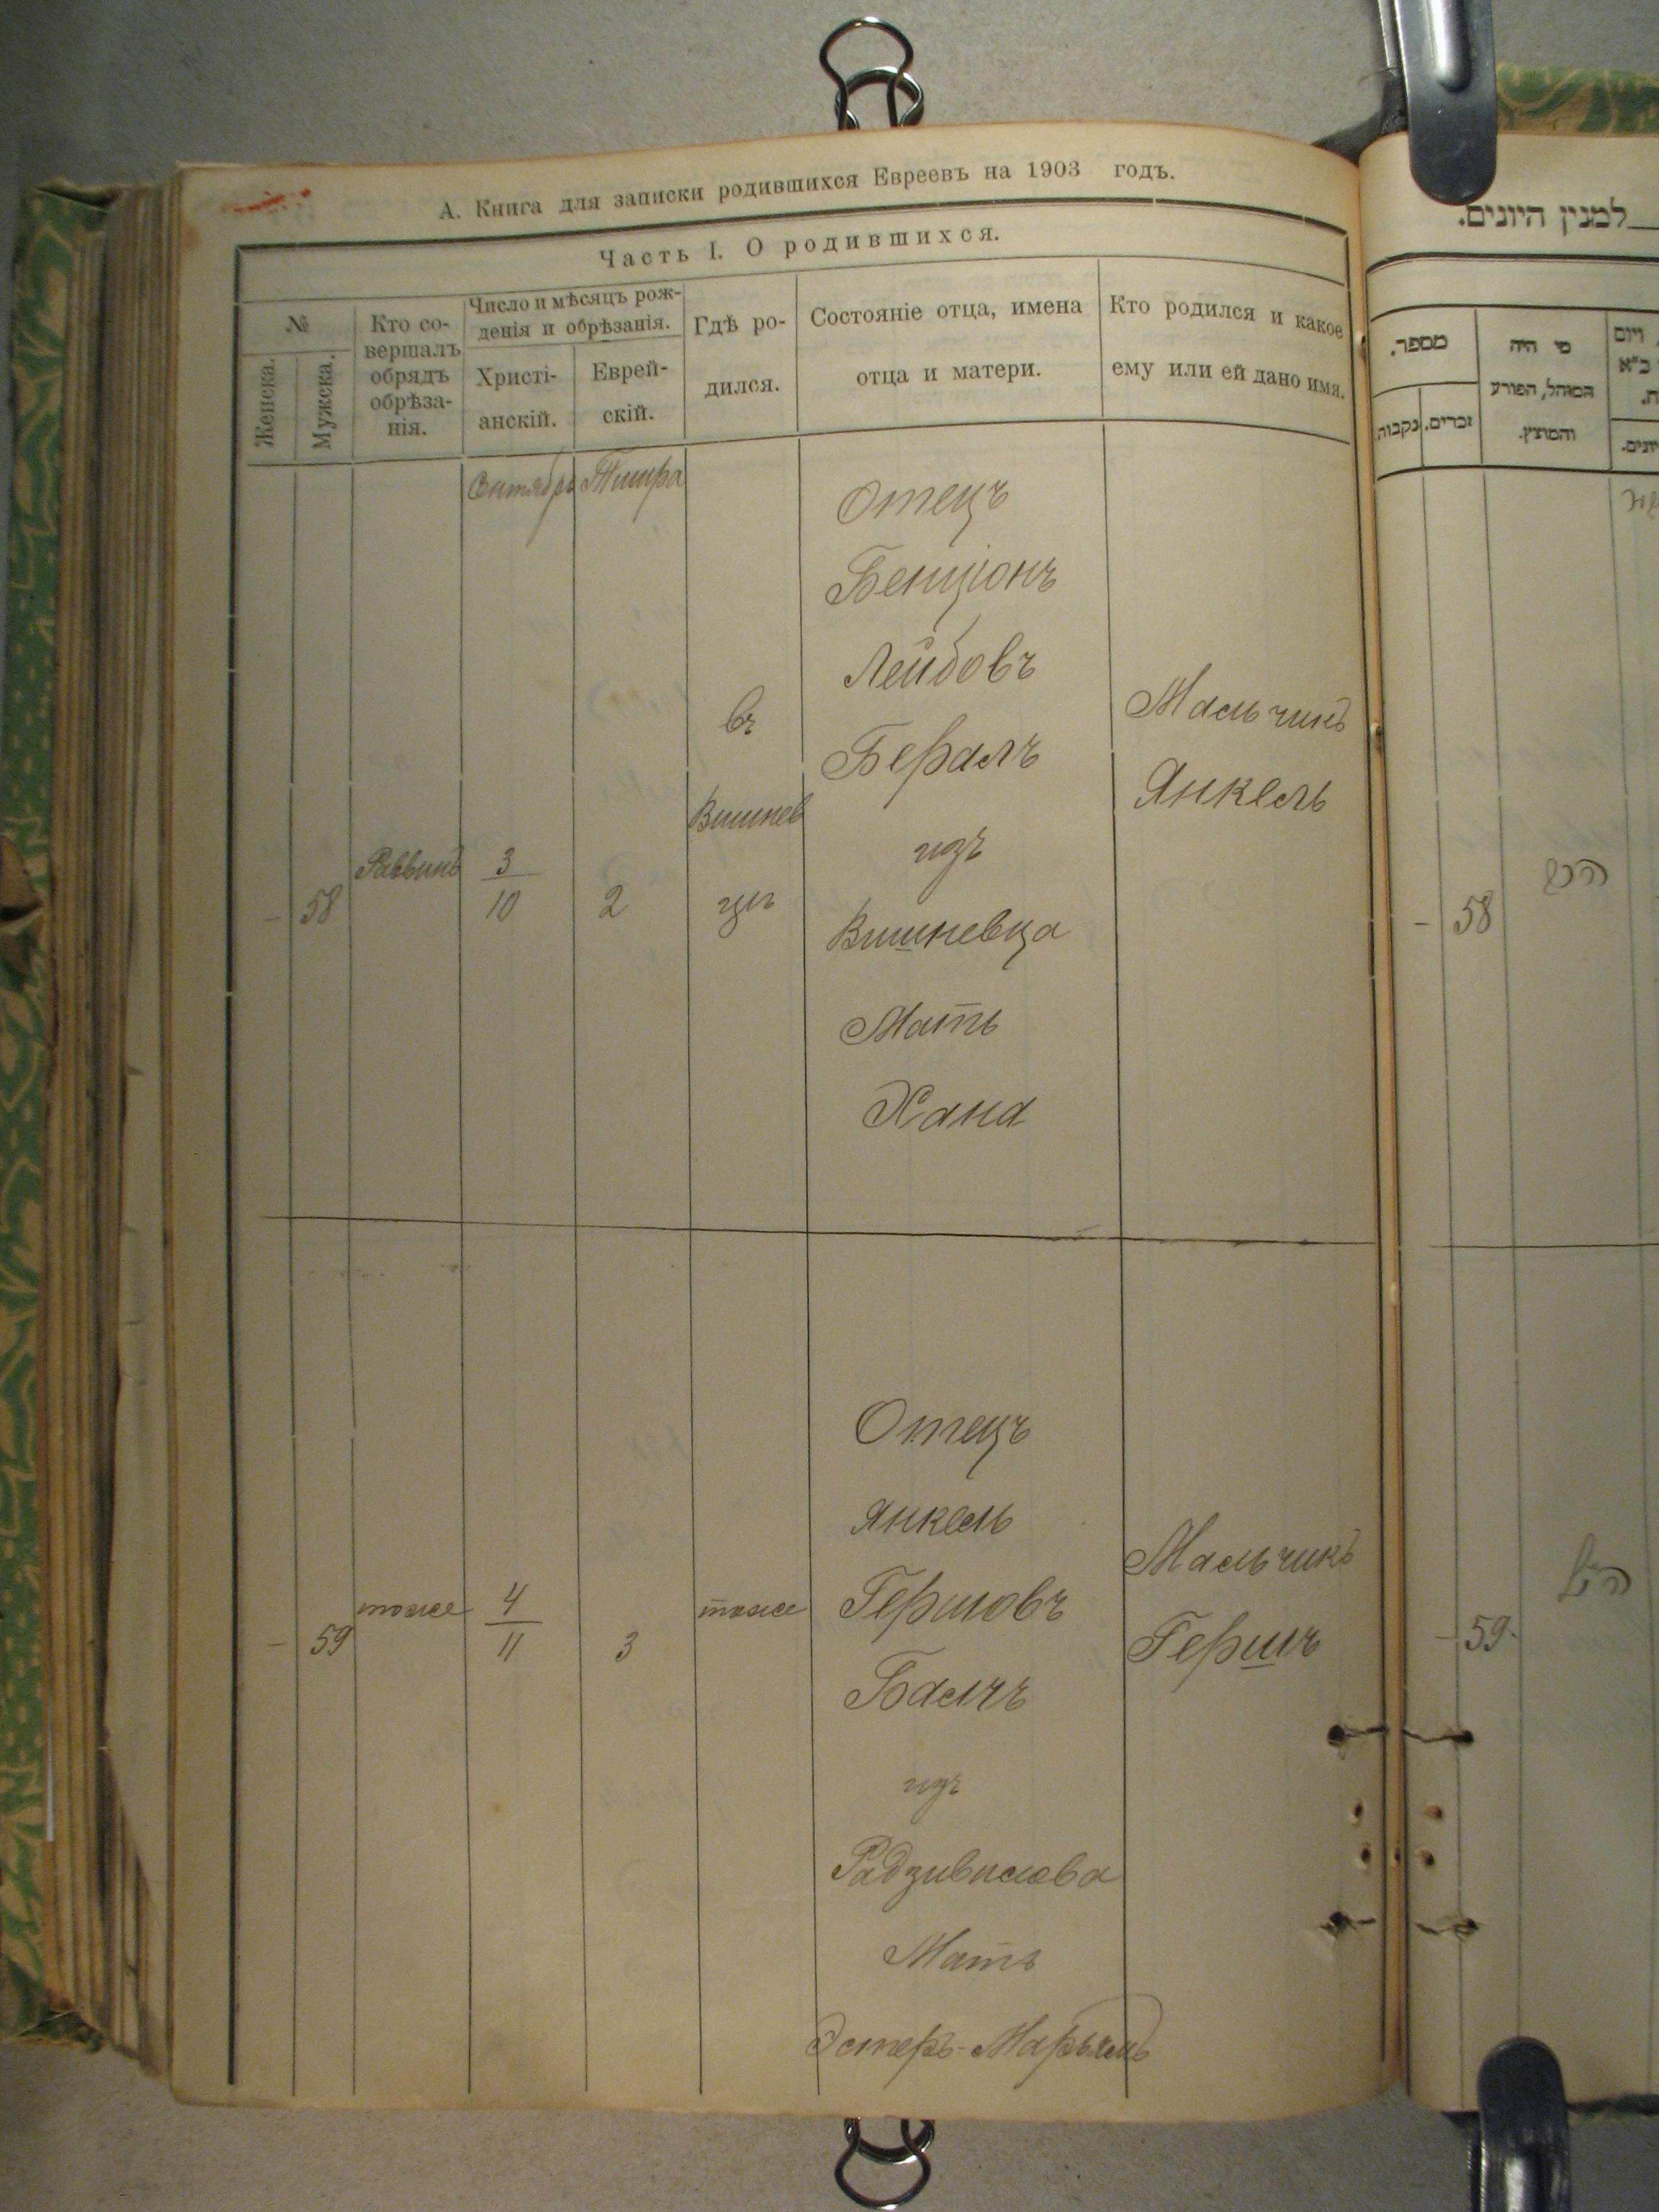 А. Книга для записки родившихся Евреевъ на 1903 годъ.
Часть I. О родившихся.
№
Женска.
Мужска.
Кто со-
вершалъ
обрядъ
обрѣза-
нія.
Число и мѣсяцъ рож-
денія и обрѣзанія.
Христі-
анскій.
Еврей-
скій.
Гдѣ ро-
дился.
Состояніе отца, имена
отца и матери.
Кто родился и какое
ему или ей дано имя.
Сентябрь
Тишра
–
58
Раввинъ
3
10
2
въ
Вишнев
цѣ
Отецъ
Бенціонъ
Лейбовъ
Бералъ
изъ
Вишневца
Мать
Хана
Мальчикъ
Янкель
–
59
тоже
4
11
3
тоже
Отецъ
Янкель
Гершовъ
изъ
Радзивилова
Мать
Эстеръ-Марьямъ
Мальчикъ
Гершъ
למנין היונים.
מספר.
נקבות.
זכרים.
מי היה
המוהל, הפורע
והמוצץ.
–
58
–
59